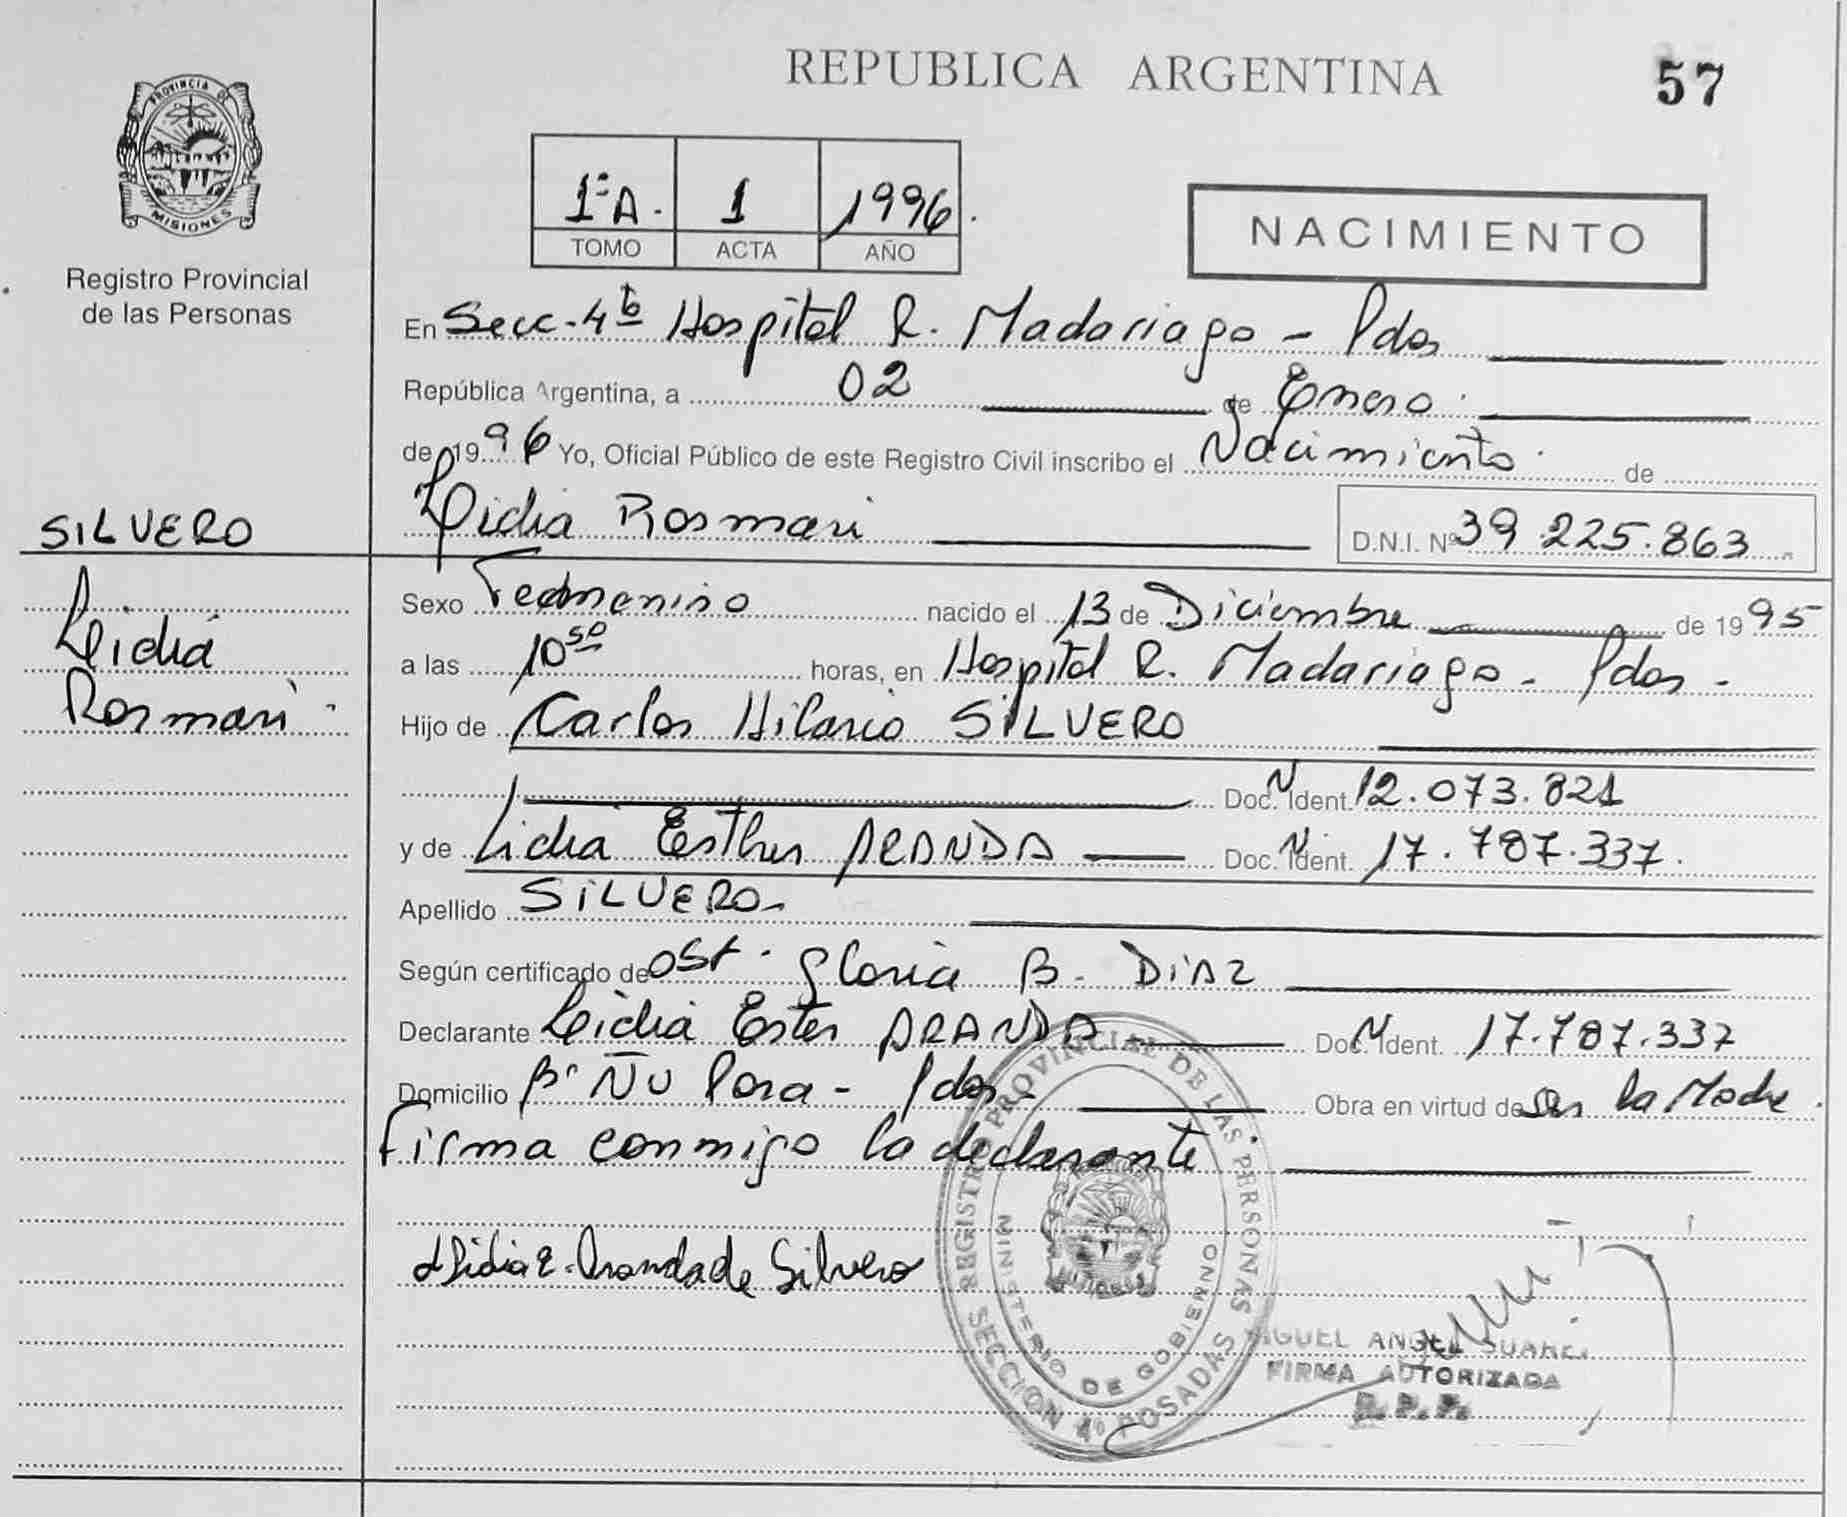 REPUBLICA ARGENTINA
57
PROVINCIA DE
MISIONES
Registro Provincial
de las Personas
1ª A.
1
1996.
TOMO
ACTA
AÑO
NACIMIENTO
En Secc. 4ta Hospital R. Madariaga - Pdas
República Argentina, a 02 de Enero.
de 1996 Yo, Oficial Público de este Registro Civil inscribo el Nacimiento. de
Lidia Rosmari
D.N.I. Nº 39.225.863
SILVERO
Lidia
Rosmari.
Sexo Femenino nacido el 13 de Diciembre de 1995
a las 10 50 horas, en Hospital R. Madariaga - Pdas -
Hijo de Carlos Hilario SILVERO
Doc. N Ident. 12.073.821
y de Lidia Esther ARANDA Doc. N Ident. 17.787.337.
Apellido SILVERO.
Según certificado de Ost. Gloria B. DIAZ
Declarante Lidia Ester ARANDA Doc. N Ident. 17.787.337
Domicilio Bº Ñu Pora - Pdas. Obra en virtud de ser la Madre.
Firma conmigo la declarante
Lidia E. Aranda de Silvero
REGISTRO PROVINCIAL DE LAS PERSONAS
MINISTERIO DE GOBIERNO
SECCION 4º POSADAS
MIGUEL ANGEL SUAREZ
FIRMA AUTORIZADA
R. P. P.